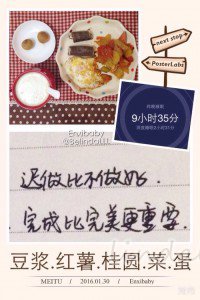 next stop
PosterLabs
Envibaby
@BelindaLIL
9小时35分
迟做比不做好.
完成比完美更重要.
豆浆.红薯.桂圆.菜.蛋
MEITU / 2016.01.30 / Envibaby